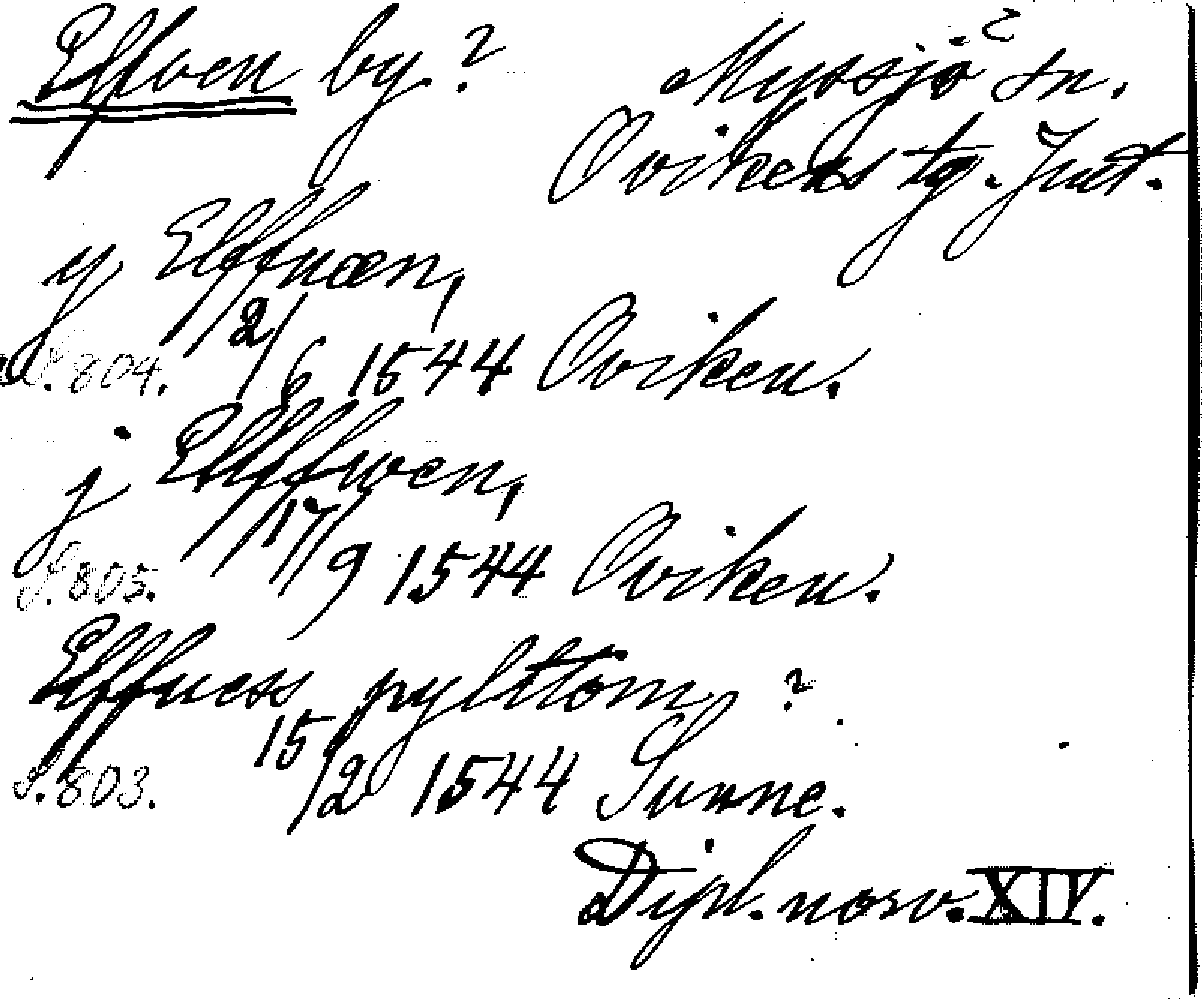 Elfven by.? Myssjö sn. ?
Ovikens tg. Jmt.
y Elffuæn,
S. 804. 2/6 1544 Oviken.
j Elffwen,
S. 805. 17/9 1544 Oviken.
Elffuess pylttom ?
S. 803. 15/2 1544 Sunne.
Dipl. norv. XIV.